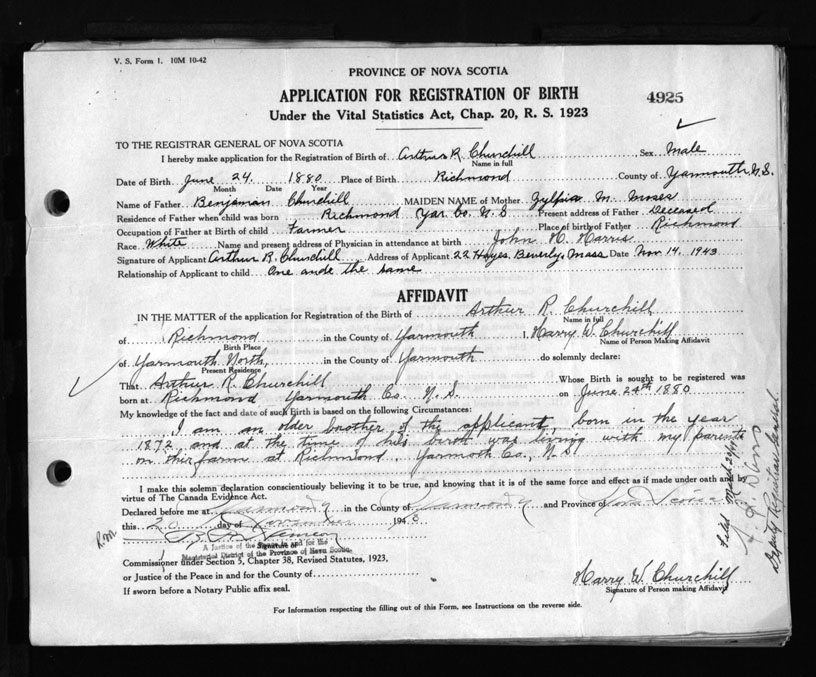 V. S. Form 1. 10M 10-42
PROVINCE OF NOVA SCOTIA
APPLICATION FOR REGISTRATION OF BIRTH
4925
Under the Vital Statistics Act, Chap. 20, R. S. 1923
TO THE REGISTRAR GENERAL OF NOVA SCOTIA
I hereby make application for the Registration of Birth of Arthur R Churchill Sex Male
Name in full
Date of Birth June 24. 1880 Place of Birth Richmond County of Yarmouth N.S.
Month Date Year
Name of Father Benjaman Churchill MAIDEN NAME of Mother Zylpia M. Moses
Residence of Father when child was born Richmond Yar. Co. N.S Present address of Father Deceased
Occupation of Father at Birth of child Farmer Place of birth of Father Richmond
Race White Name and present address of Physician in attendance at birth John H. Harris
Signature of Applicant Arthur R. Churchill Address of Applicant 22 Hayes. Beverly, Mass Date Nov 14. 1943
Relationship of Applicant to child One ande the same
AFFIDAVIT
IN THE MATTER of the application for Registration of the Birth of Arthur R. Churchill
Name in full
of Richmond in the County of Yarmouth I, Harry W. Churchill
Birth Place Name of Person Making Affidavit
of Yarmouth North, in the County of Yarmouth do solemnly declare:
Present Residence
That Arthur R. Churchill Whose Birth is sought to be registered was
born at Richmond Yarmouth Co. N.S. on June 24th 1880
My knowledge of the fact and date of such Birth is based on the following Circumstances:
I am an older brother of the applicant, born in the year
1872 and at the time of his birth was living with my parents
on their farm at Richmond Yarmoth Co., N.S.
I make this solemn declaration conscientiously believing it to be true, and knowing that it is of the same force and effect as if made under oath and by
virtue of The Canada Evidence Act.
Declared before me at Yarmouth in the County of Yarmouth and Province of Nova Scotia
this 20 day of November 194
A Justice of the Peace in and for the
Signature of
Magisterial District of the Province of Nova Scotia
Commissioner under Section 5, Chapter 38, Revised Statutes, 1923,
or Justice of the Peace in and for the County of
If sworn before a Notary Public affix seal.
Harry W. Churchill
Signature of Person making Affidavit
For Information respecting the filling out of this Form, see Instructions on the reverse side.
R.M
Filed
Deputy Registrar General